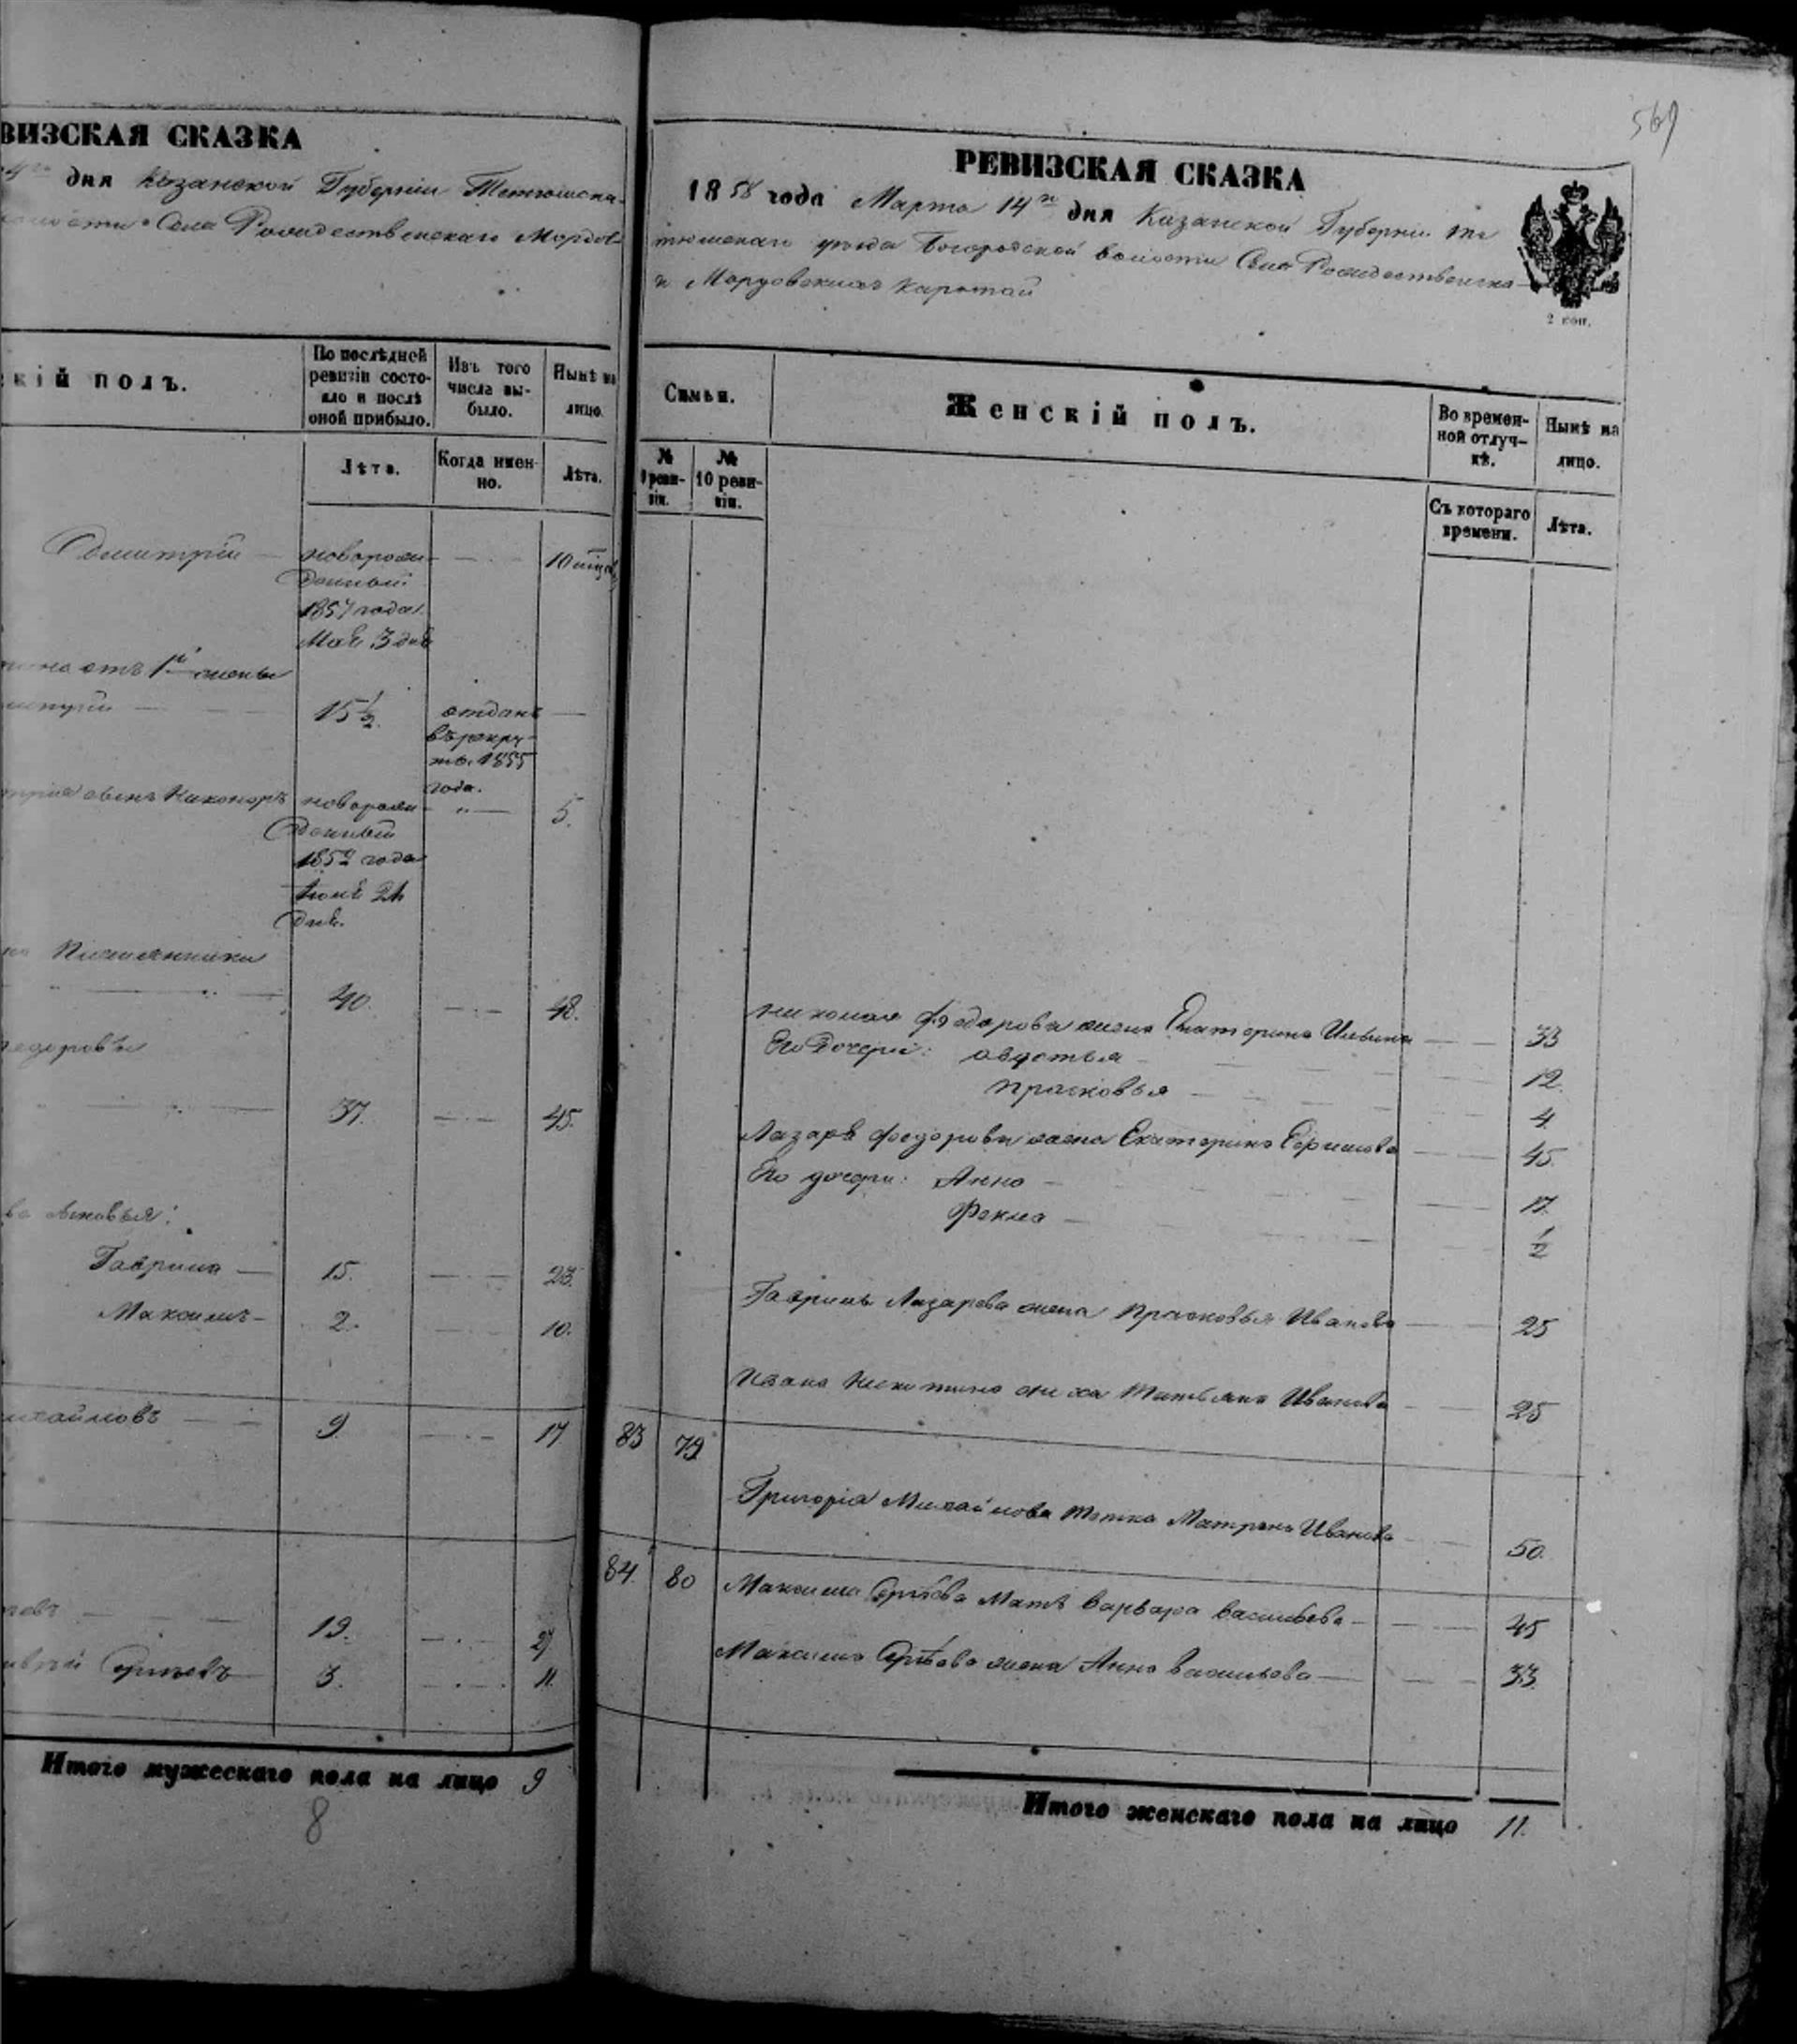 ВИЗСКАЯ СКАЗКА
дня Казанской Губерніи Тетюшска-
Села Рождественскаго Мордов-
скій полъ.
По послѣдней ревизіи состо-
яло и послѣ оной прибыло.
Изъ того числа вы-
было.
Нынѣ на лицо.
Лѣта.
Когда имен-
но.
Лѣта.
Дмитрій
новорож-
денный
1857 года
Мая 3 дня
10 мѣся
отъ 1й жены
15 1/2
отданъ
въ рекру-
ты 1855
года.
Никоноръ новорож-
денный
1852 года
Іюня 21
дня.
5.
Племянники
40. 48.
едоровъ
37. 45.
ва сыновья:
Гаврила 15. 23.
Максимъ 2. 10.
ихайловъ 9. 17
19. 27
Сергѣевъ 3. 11.
Итого мужескаго пола на лицо 9
8
569
РЕВИЗСКАЯ СКАЗКА
1858 года Марта 14го дня Казанской Губерніи Те
тюшскаго уѣзда Богородской волости Села Рождественска-
Мордовскихъ Каратай
2 коп.
Семьи.
Женскій полъ.
Во времен-
ной отлуч-
кѣ.
Нынѣ на
лицо.
№ 9 реви-
зіи.
№ 10 реви-
зіи.
Съ котораго
времени.
Лѣта.
Николая Федорова жена Екатерина Ильина 33
Его Дочери: Авдотья 12.
Прасковья 4
Лазаря Федорова жена Екатерина Ефимова 45.
Его дочери: Анна 17.
Фекла 1/2
Гаврилы Лазарева жена Прасковья Иванова 25
Ивана Никитина Татьяна Иванова 25
83 79
Григорія Михайлова тетка Матрена Иванова 50.
84. 80 Максима Сергѣева Мать Варвара Васильева 45
Максима Сергѣева жена Анна Васильева 33.
Итого женскаго пола на лицо 11.